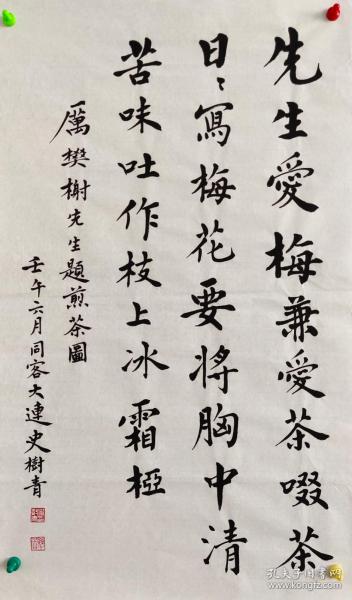 先生愛梅兼愛茶啜茶
日〻寫梅花要將胸中清
苦味吐作枝上冰霜椏
厲樊榭先生題煎茶圖
壬午六月同客大連史樹青
孔夫子旧书网